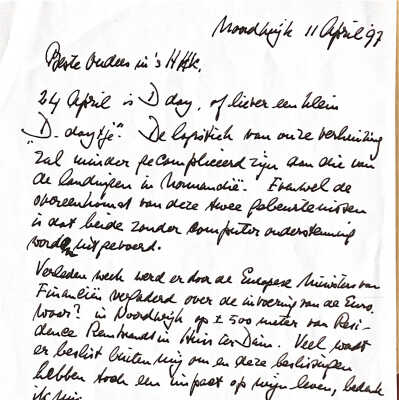 Noordwijk 11 April '97
Beste Ouders in 's HHK,
24 April is D day, of liever een klein
"D-daytje". De logistiek van onze verhuizing
zal minder gecompliceerd zijn dan die van
de landingen in Normandië. Evenwel de
overeenkomst van deze twee gebeurtenissen
is dat beide zonder computer ondersteuning
worden uitgevoerd.
Verleden week werd er door de Europese Ministers van
Financiën vergaderd over de invoering van de Euro.
Waar? in Noordwijk op ± 500 meter van Resi-
dence Rembrandt in Huis ter Duin. Veel wordt
er beslist buiten mij om en deze beslissingen
hebben toch een impact op mijn leven, bedenk
ik mij